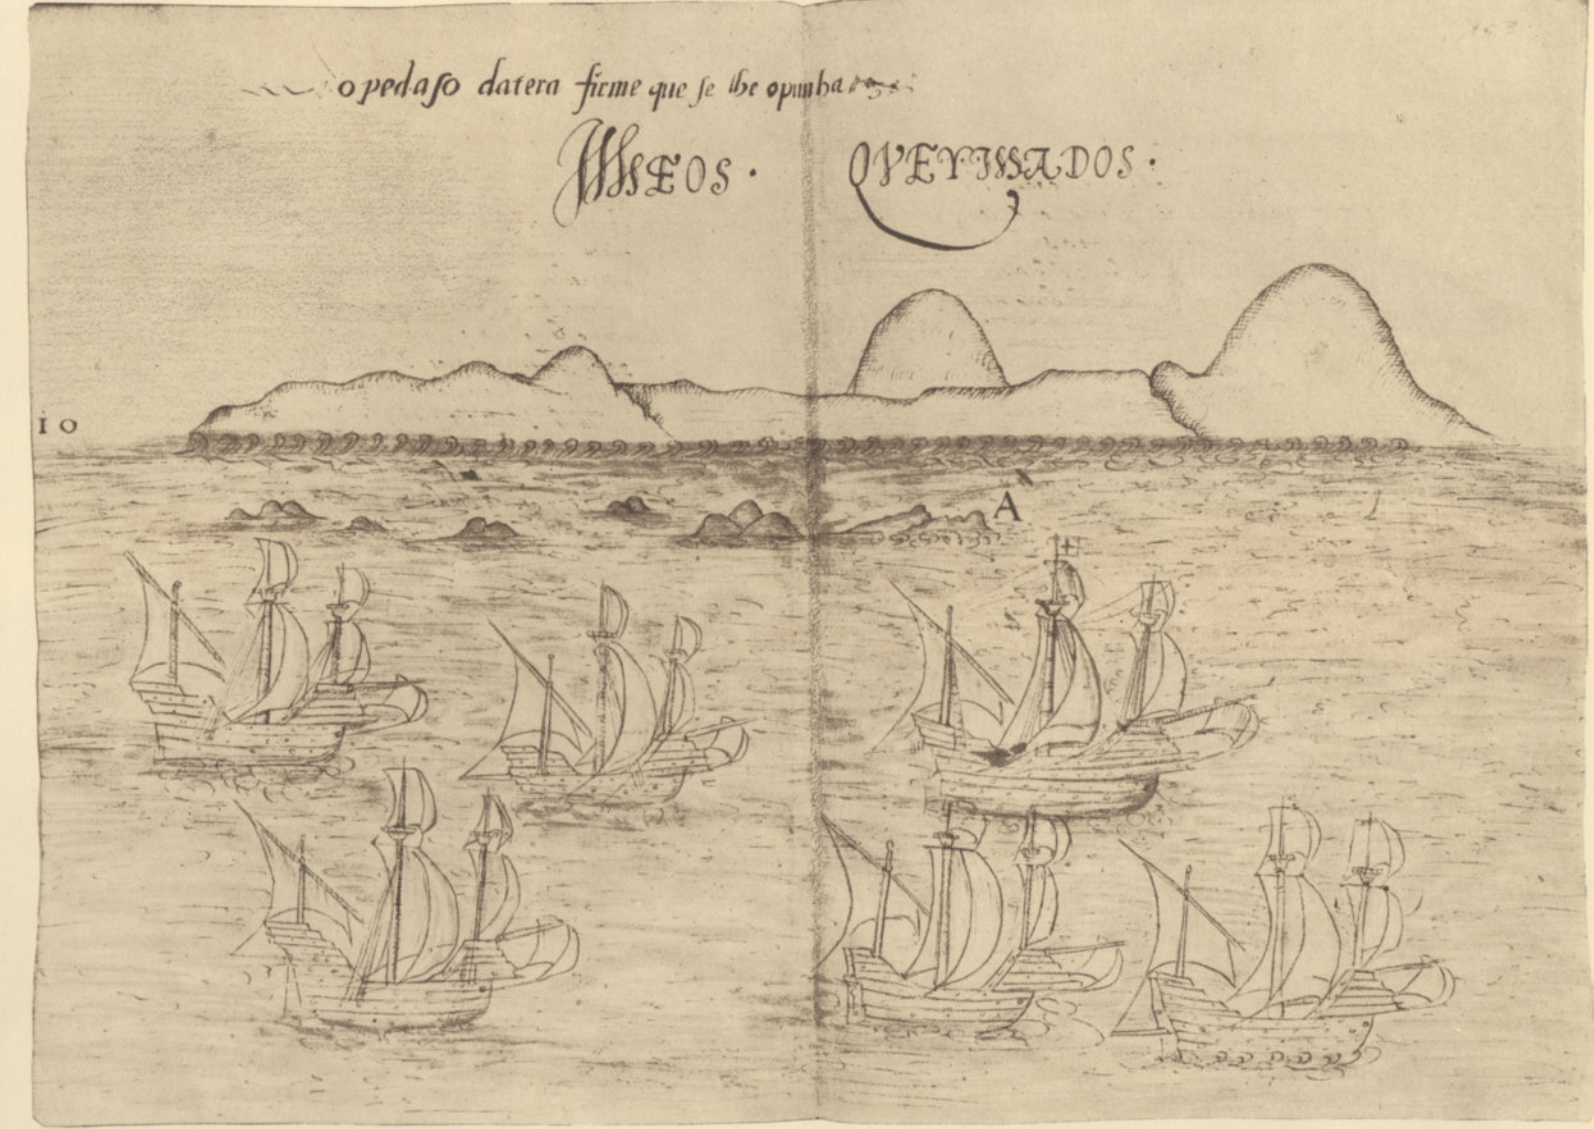 o pedaſo da tera firme que ſe lhe opunha
Ilheos · Qveymados ·
10
A